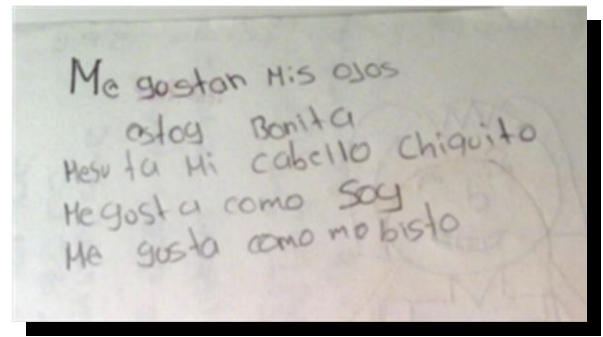 Me gostan Mis ojos
estoy Bonita
Mesu ta Mi cabello Chiquito
Me gosta como Soy
Me gusta como me bisto